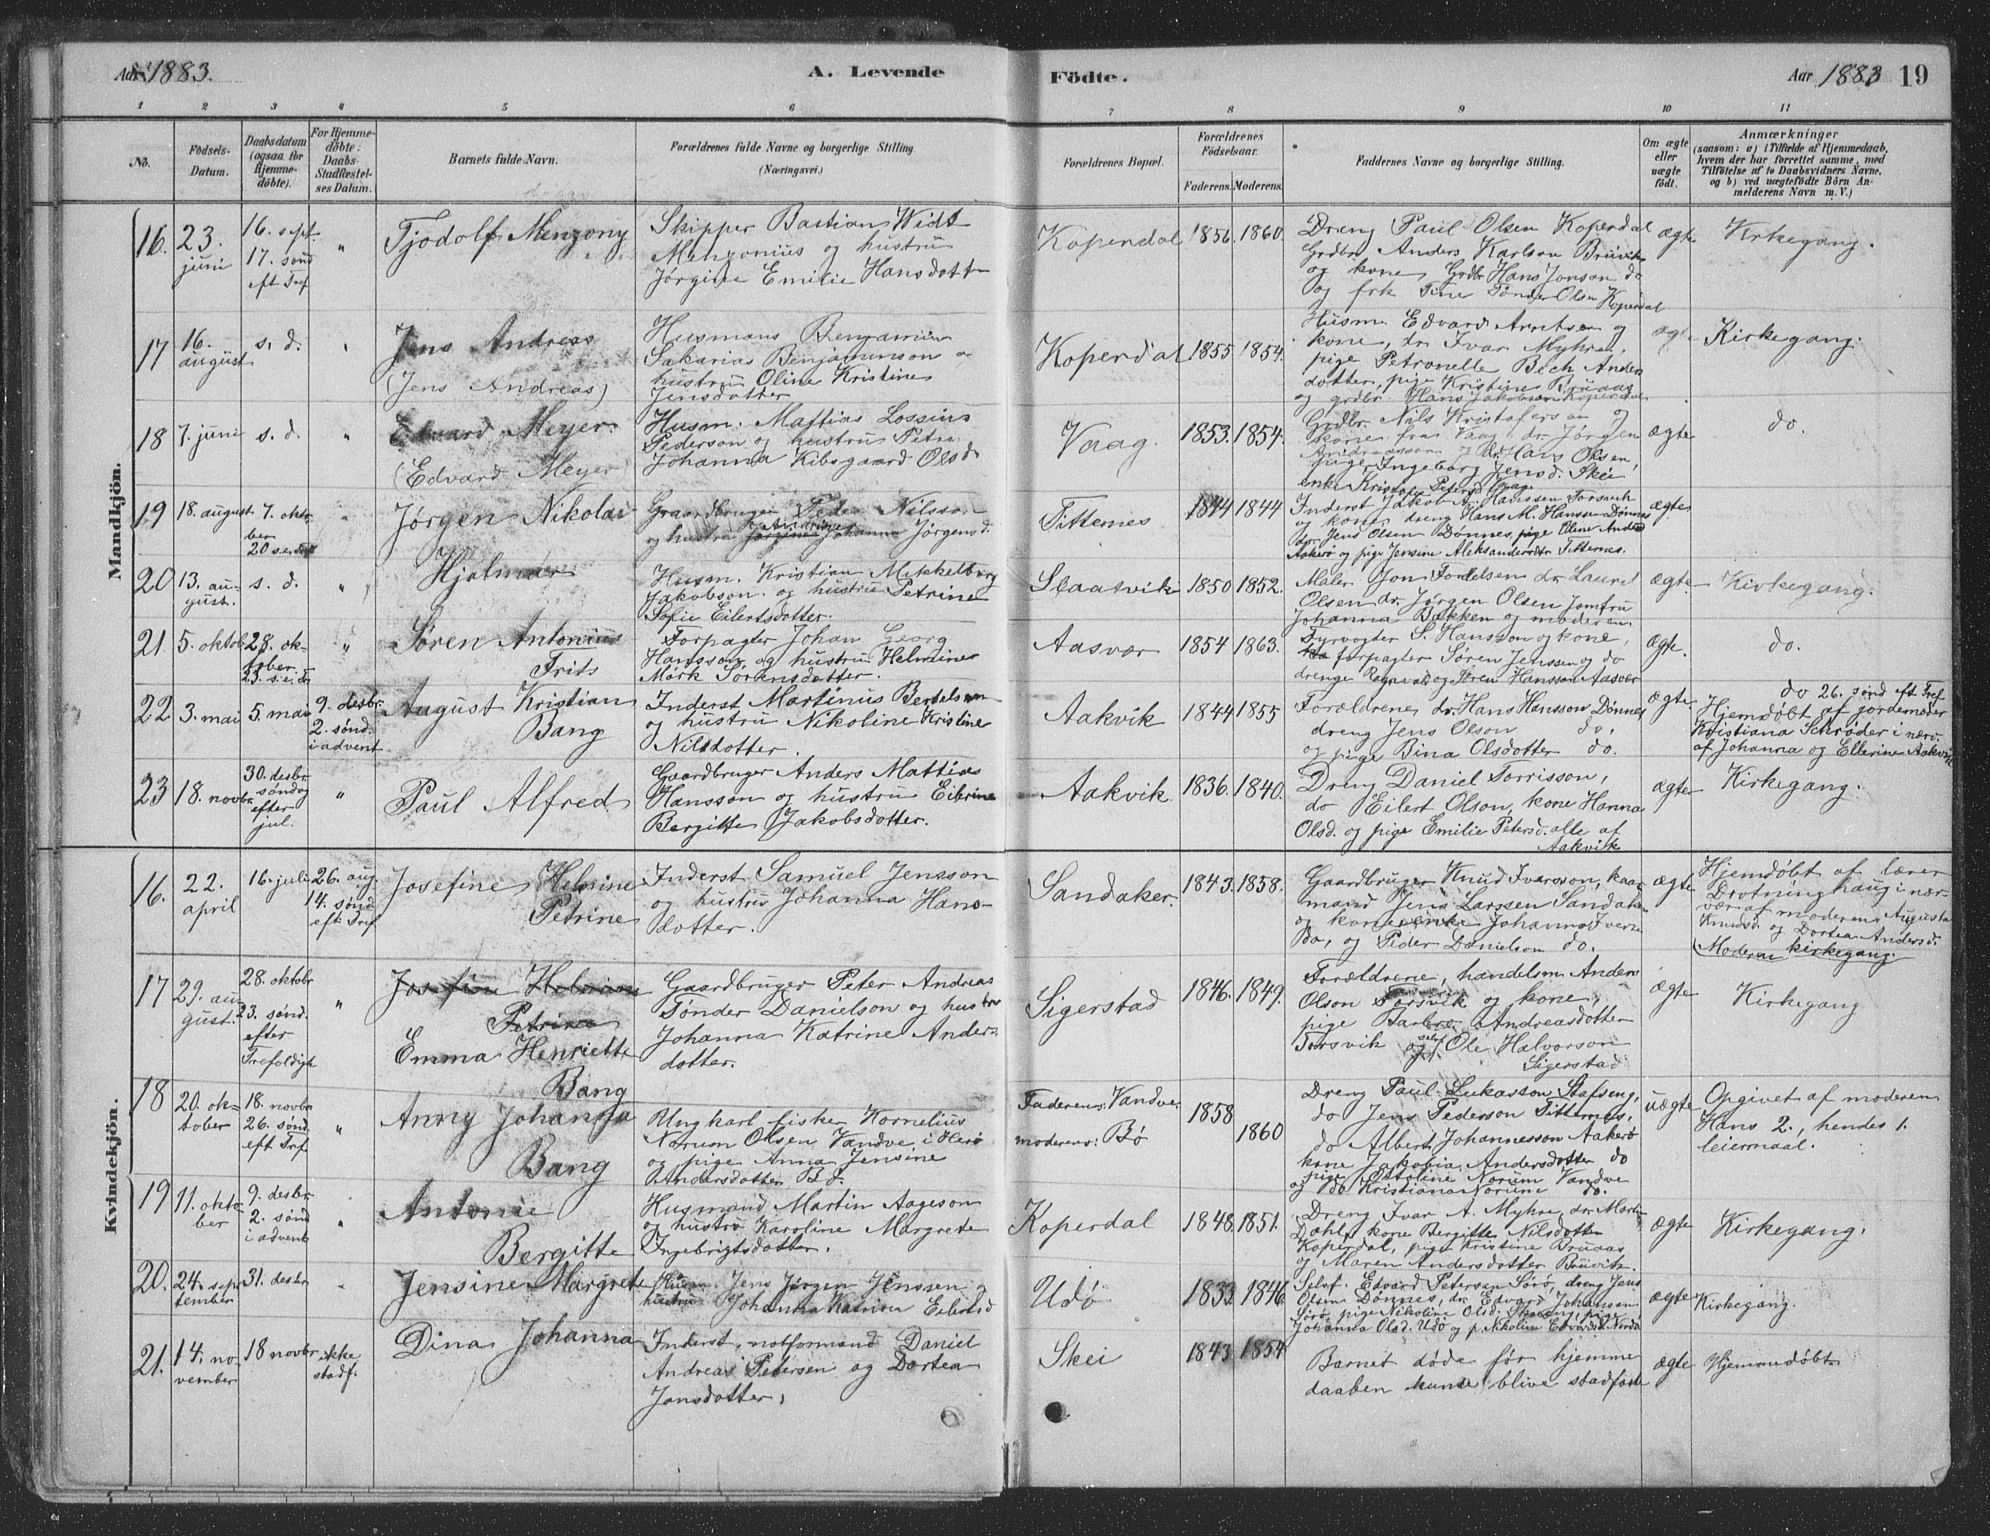 Aar 1883. A. Levende Födte. Aar 1883 19
1 2 3 4 5 6 7 8 9 10 11
No. Födsels-Datum. Daabsdatum (ogsaa for Hjemmedöbte). For Hjemmedöbte: Daabs-Stadfæstelses Datum. Barnets fulde Navn. Forældrenes fulde Navne og borgerlige Stilling. (Næringsvei.) Forældrenes Bopæl. Forældrenes Födselsaar. Faderens. Moderens. Faddernes Navne og borgerlige Stilling. Om ægte eller uægte födt. Anmærkninger (saasom: a) i Tilfælde af Hjemmedaab, hvem der har forrettet samme, med Tilföielse af to Daabsvidners Navne, og b) ved uægtefödte Börn Anmelderens Navn m. V.)
Mandkjön.
16. 23. juni 16. sept. 17. sønd eft Tref " Tjodolf Menzony
Skipper Bastian Widt
Menzonius og hustru
Jørgine Emilie Hansdotter
Koperdal 1856. 1860.
Dreng Paul Olsen Koperdal
Grdbr Anders Karlson Bruvik
og kone, Grdbr Hans Jonson do
og frk Tine Tønder Olsen Koperdal
ægte Kirkegang.
17 16. august s. d. " Jens Andreas
(Jens Andreas)
Husmans Benjamin
Sakarias Benjaminson o
hustru Oline Kristine
Jensdotter
Koperdal 1855 1854.
Husm Edvard Arntsen og
kone, dr. Ivar Myhre,
pige Petronelle Bech Anders
dotter, pige Kristine Bruaas
og grdbr Hans Jakobson Koperdal
ægte Kirkegang.
18 7. juni s. d. " Edvard Meyer.
(Edvard Meyer)
Husm. Mattias Lossius
Pederson og hustru Petra
Johanna Kibsgaard Olsd
Vaag. 1853. 1854.
Grdbr. Nils Kristofersen og
kone fra Vaag, dr. Jørgen
Andreasson, dr. Hans Olsen,
pige Ingeborg Jensd. Skei
enke Kristine Petersd Vaag.
ægte do.
19 18. august 7. oktober 20 s. e. Tref " Jørgen Nikolai
Gaardbruger Peder Nilsson
og hustru Andrine Johanna Jørgensd.
Titternes 1844 1844
Inderst Jakob A. Hanssen Torsvik
og kone, dreng Hans M. Hanssen Dønnes
dr. Jens Olsen Dønnes, pige Oline Andersd
Aakerø og pige Jensine Aleksandersdtr Titternes.
ægte
20 13. august. s. d. " Hjalmar
Husm. Kristian Mikkelborg
Jakobson og hustru Petrine
Sofie Eilertsdotter.
Slaatvik 1850 1852.
Maler Jon Fordelsen dr. Laurit
Olsen dr. Jørgen Olsen Jomfru
Johanna Bakken og moderen.
ægte. Kirkegang.
21. 5. oktob 28. oktober 23. s. e. Tr " Søren Antonius
Frits
Forpagter Johan Georg
Hansson og hustru Helmine
Mørk Sørensdotter.
Aasvær 1854 1863.
Fyrvogter S. Hansson og kone,
forpagter Søren Jenssen og do
drenge Ragnvald og Søren Hansson Aasvær
ægte. do.
22 3. mai 5. mai 9. desbr. 2. sønd. i advent August Kristian
Bang
Inderst Martinus Bertelsen
og hustru Nikoline Kristine
Nilsdotter.
Aakvik 1844 1855
Forældrene, dr. Hans Hansson Dønnes
dreng Jens Olson do,
og pige Bina Olsdotter do.
ægte do 26. sønd eft Tref.
Hjemdøbt af jordemoder
Kristiana Schrøder i nærv.
af Johanna og Ellerine Aakvik
23 18. novbr. 30. desbr. søndag efter jul. " Paul Alfred
Gaardbruger Anders Mattias
Hansson og hustru Elerine
Bergitte Jakobsdotter.
Aakvik. 1836. 1840.
Dreng Daniel Torrisson,
do Eilert Olson, kone Hanna
Olsd. og pige Emilie Petersd. alle af
Aakvik
ægte Kirkegang.
Kvindekjön.
16. 22. april 16. juli 26. aug. 14. sønd eft Tref Josefine Helmine
Petrine
Inderst Samuel Jensson
og hustru Johanna Hans-
dotter.
Sandaker. 1843. 1858.
Gaardbruger Knud Ivarsson, kaar
mand Jens Larssen Sandaker
og kone, enke Johanna Iversd
Bø, og Peder Danielson do.
ægte Hjemdøbt af lærer
Drotninghaug i nær-
vær af moderen, Augusta
Knudsd. og Dortea Andersd.
(Moderens kirkegang.
17 29. august. 28. oktobr 23. sønd. efter Trefoldigh " Josefine Helmine
Petrine
Emma Henriette
Bang
Gaardbruger Peter Andreas
Tønder Danielson og hustru
Johanna Katrine Anders-
dotter.
Sigerstad 1846. 1849.
Forældrene, handelsm. Anders
Olson Torsvik og kone,
pige Barbro Andreasdotter
Torsvik og Ole Halvorson
Sigerstad
ægte Kirkegang
18 20. oktober 18. novbr 26. sønd. eft Tref " Anny Johanna
Bang
Ungkarl fisker Kornelius
Norum Olsen Vandve i Herø
og pige Anna Jensine
Andersdotter Bø.
Faderens: Vandve
moderens: Bø
1858 1860
Dreng Paul Lukasson Stafseng,
do Jens Pedersson Titternes,
do Albert Johannesson Aakerø
kone Jakobia Andersdotter do
pige Ottoline Norum Vandve
og do Kristiana Norum do.
uægte Opgivet af moderen
Hans 2., hendes 1.
leiermaal.
19 11. oktober 9. desbr. 2. sønd i advent " Antonie
Bergitte
Husmand Martin Aageson
og hustru Karoline Margrete
Ingebrigtsdotter.
Koperdal 1848. 1851.
Dreng Ivar A. Myhre, dr. Martin
Dahl, kone Bergitte Nilsdotter
Koperdal, pige Kristine Bruaas
og Maren Andersdotter Bruvik.
ægte Kirkegang.
20. 24. september 31. desbr " Jensine Margrete
Husm. Jens Jørgen Jenssen og
hustru Johanna Katrina Eilertsd
Udø 1833. 1846.
Selvf. Edvard Petersen Sørø, dreng Jens
Olsen Dønnes, dr. Edvard Johansen
Sørø, pige Nikoline Olsd. Skaaen, pige
Johanna Olsd. Udø og p. Nikoline Edvardsd. Nordø
ægte Kirkegang.
21. 14. november 18 novbr ikke stadf. Dina Johanna
Inderst, notformand Daniel
Andreas Petersen og Dortea
Jonsdotter.
Skei 1843 1854
Barnet døde før hjemme
daaben kunde blive stadfæstet
ægte Hjemmedøbt.